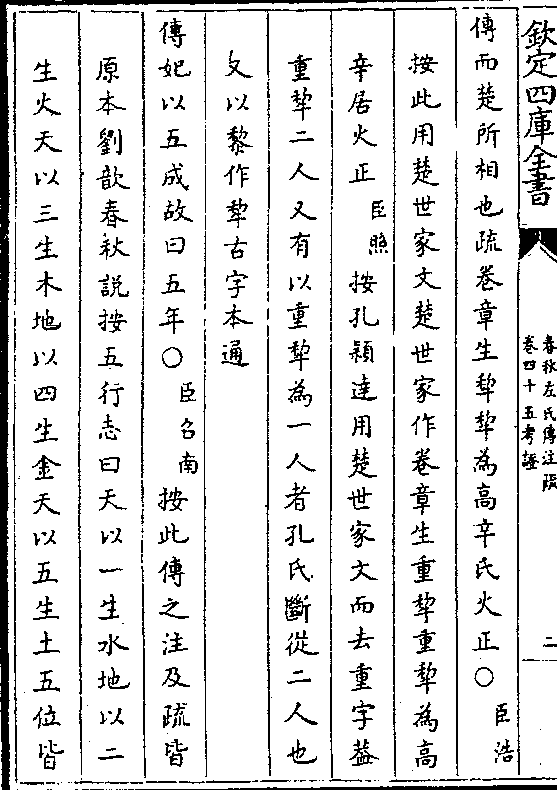 欽定四庫全書
春秋左氏傳注疏
卷四十五考證
二
傳而楚所相也疏卷章生犂犂為高辛氏火正〇臣浩
按此用楚世家文楚世家作卷章生重犂重犂為高
辛居火正臣照按孔穎達用楚世家文而去重字葢
重犂二人又有以重犂為一人者孔氏斷從二人也
又以黎作犂古字本通
傳妃以五成故曰五年〇臣召南按此傳之注及疏皆
原本劉歆春秋説按五行志曰天以一生水地以二
生火天以三生木地以四生金天以五生土五位皆